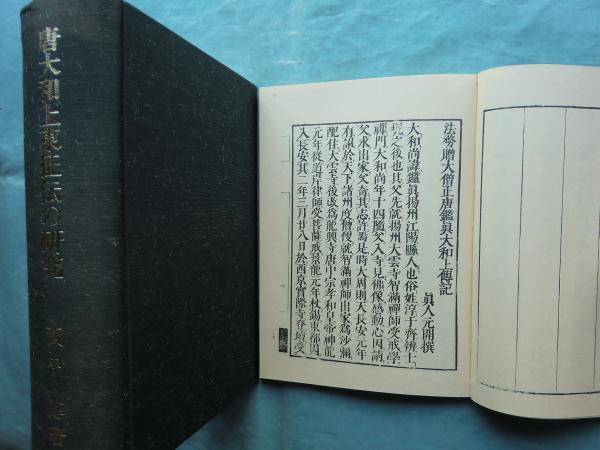 唐大和上東征伝の研究
著
法務贈大僧正唐鑑眞大和上傳記
眞人元開撰
大和尚諱鑑眞揚州江陽縣人也俗姓淳于齊辨士
髡之後也其父先就揚州大雲寺智滿禪師受戒學
禪門大和尚年十四隨父入寺見佛像感動心因請
父求出家父奇其志許焉是時大周則天長安元年
有詔於天下諸州度僧便就智滿禪師出家爲沙彌
配住大雲寺後改爲龍興寺唐中宗孝和皇帝神龍
元年從道岸律師受菩薩戒景龍元年杖錫東都因
入長安其二年三月廿八日於西京實際寺登壇受